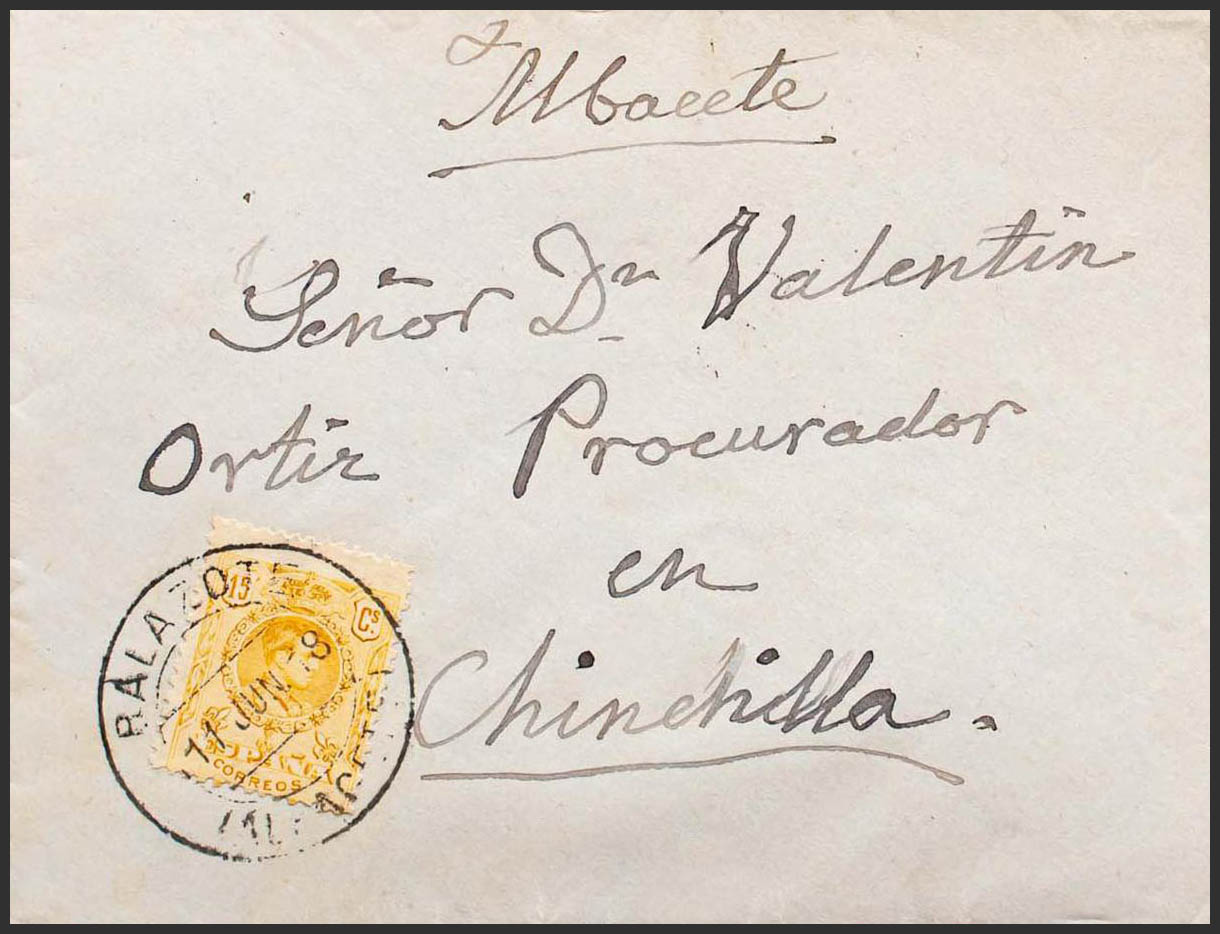 Albacete
Señor Dn Valentin
Ortiz Procurador
en
Chinchilla.
BALAZOTE
15 Cs
11 JUN 18
CORREOS
(ALBACETE)